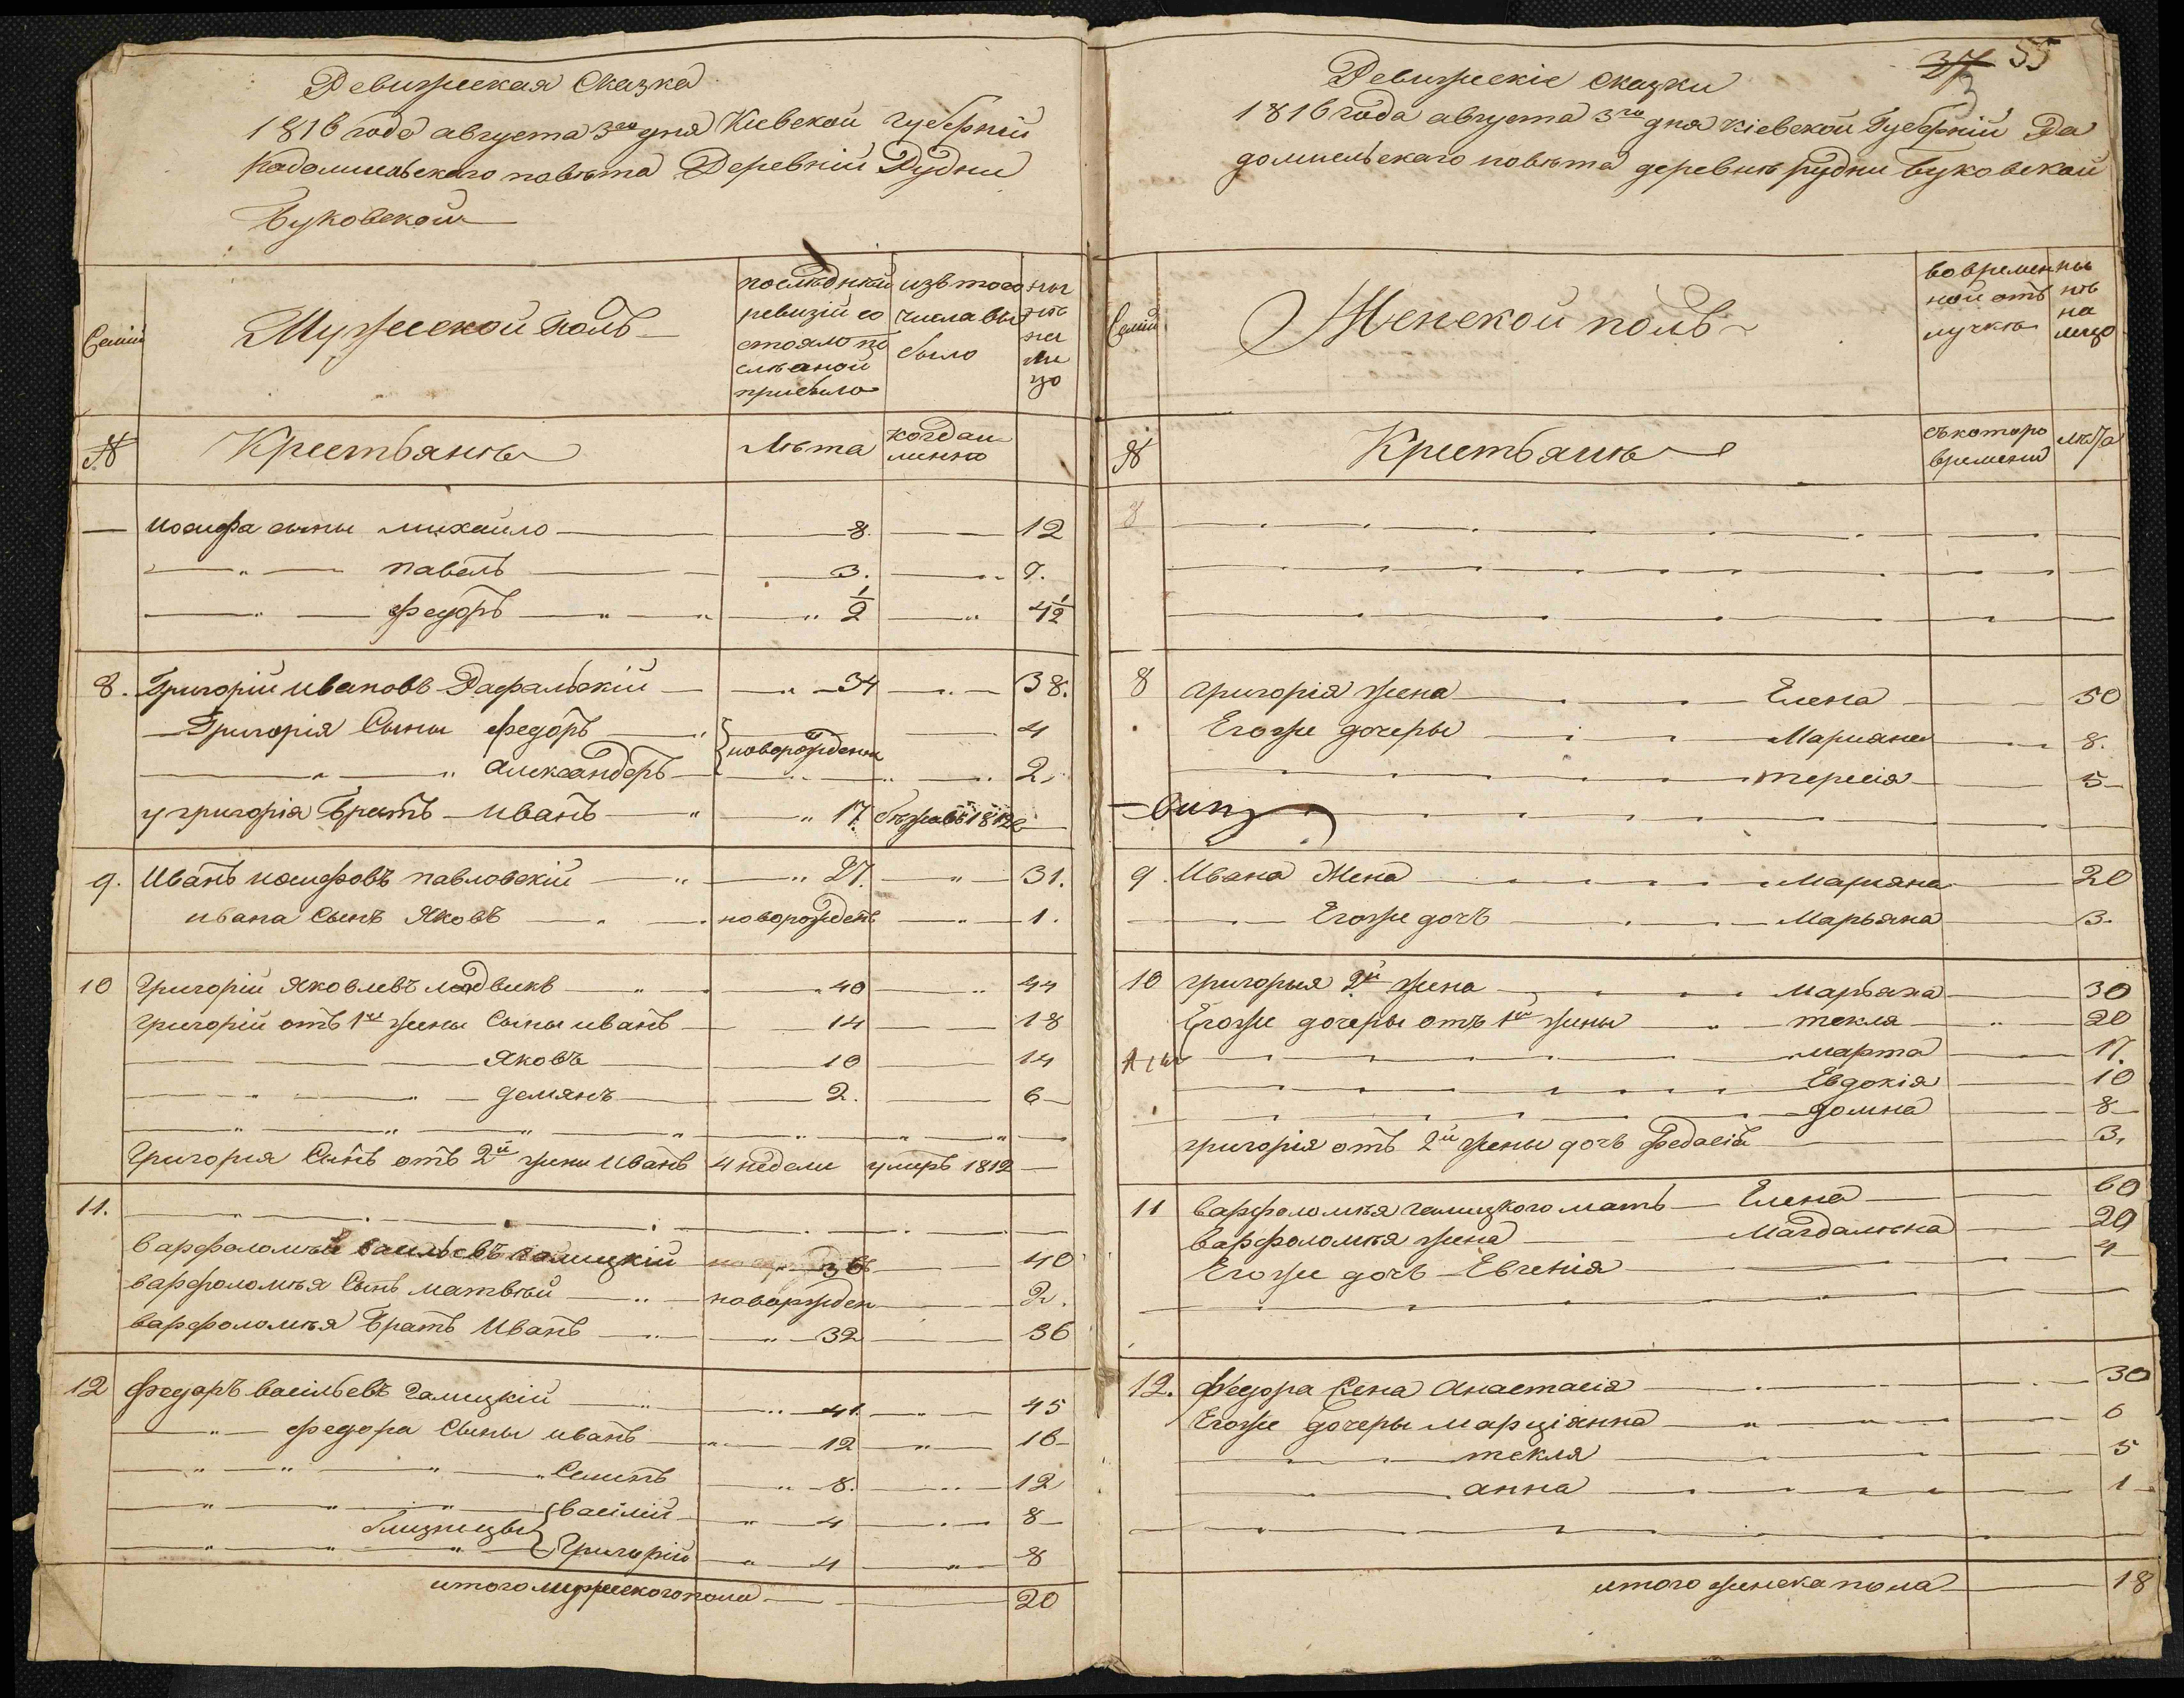 Ревижская Сказка
1816 года августа 3го дня Киевской губерній
Радомисльского повѣта Деревній Рудни
Буковской
Семіи
Мужеской полъ
последнѣй ревизій состояло послѣ оной прибыло
изъ того числа выбыло
нынѣ на лицо
№
Крестьянѣ
Лѣта
когда именно
иосифа сыны михайло 8. 12
павелъ 3. 7.
федоръ 1/2 4 1/2
8. Григорій ивановъ Рафальскій 34 38.
Григорія Сыны федоръ новорожденн 4
александеръ 2.
у григорія Братъ иванъ 17. бѣжавъ 1812
9. Иванъ иосифовъ павловскій 27. 31.
ивана Сынъ Яковъ новорожденъ 1.
10 Григорій Яковлевъ 40 44
григорій отъ 1й жены Сыны иванъ 14 18
Яковъ 10 14
демянъ 2. 6
Григория Сынъ отъ 2й жены Иванъ 4 недели умеръ 1812
11.
варфоломѣй васильевъ галицкій 36 40
варфоломѣя Сынъ матвѣй новоржден 2.
варфоломѣя Братъ Иванъ 32 36
12 федоръ васильевъ галицкій 41. 45
федора Сыны иванъ 12 16
Семенъ 8. 12
близнецы василій 4 8
Григорій 4 8
итого мужеского пола 20
37 55
Ревижскіе сказки
1816 года августа 3го дня кіевской Губерній Ра
домисльскаго повѣта деревнѣ рудни буковской
Семіи
Женской полъ
во временной отлучкѣ
нынѣ на лицо
№
Крестьянѣ
съ которо времени
лѣта
8
8 григорія жена Елена 50
Егоже дочеры Марияна 8.
тересія 5
9 Ивана Жена Марияна 20
Егоже дочь Марьяна 3.
10 григорыя 2й жена марьяна 30
Егоже дочеры отъ 1й жены текля 20
марта 17.
Евдокія 10
домна 8
григорія отъ 2й жены дочь Федосія 3.
11 варфоломѣя галицкого мать Елена 60
варфоломѣя жена Магдалѣна 20
Егоже дочь Евгенія 4
12. Федора Жена Анастасія 30
Егоже дочеры марціянна 6
текля 5
анна 1
итого женска пола 18